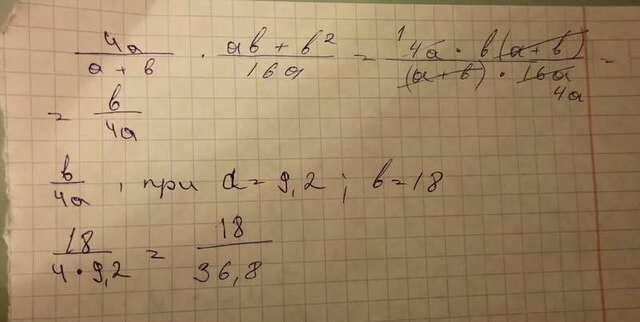 4a/(a + b) · (ab + b²)/16a = (¹4a · b(a+b))/((a+b) · 16a 4a) =
= b/4a
b/4a , при a = 9,2 ; b = 18
18/(4 · 9,2) = 18/36,8